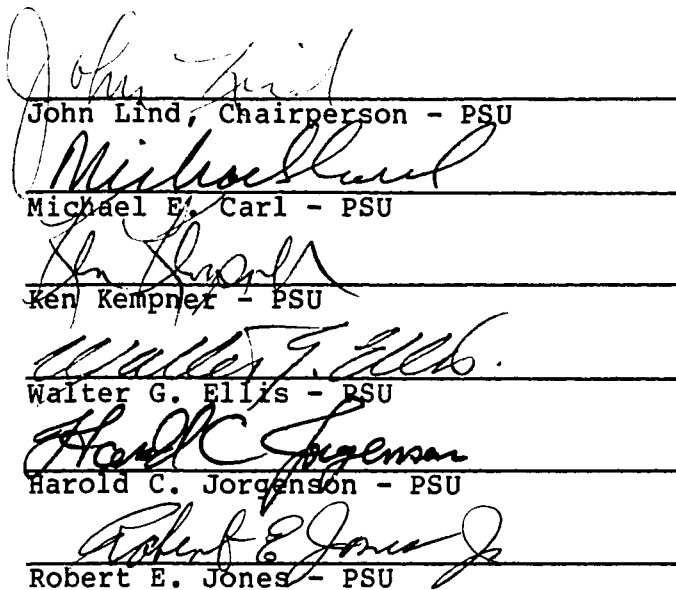 John Lind
John Lind, Chairperson - PSU
Michael Carl
Michael E. Carl - PSU
Ken Kempner
Ken Kempner - PSU
Walter G. Ellis.
Walter G. Ellis - PSU
Harold C Jorgenson
Harold C. Jorgenson - PSU
Robert E Jones Jr
Robert E. Jones - PSU